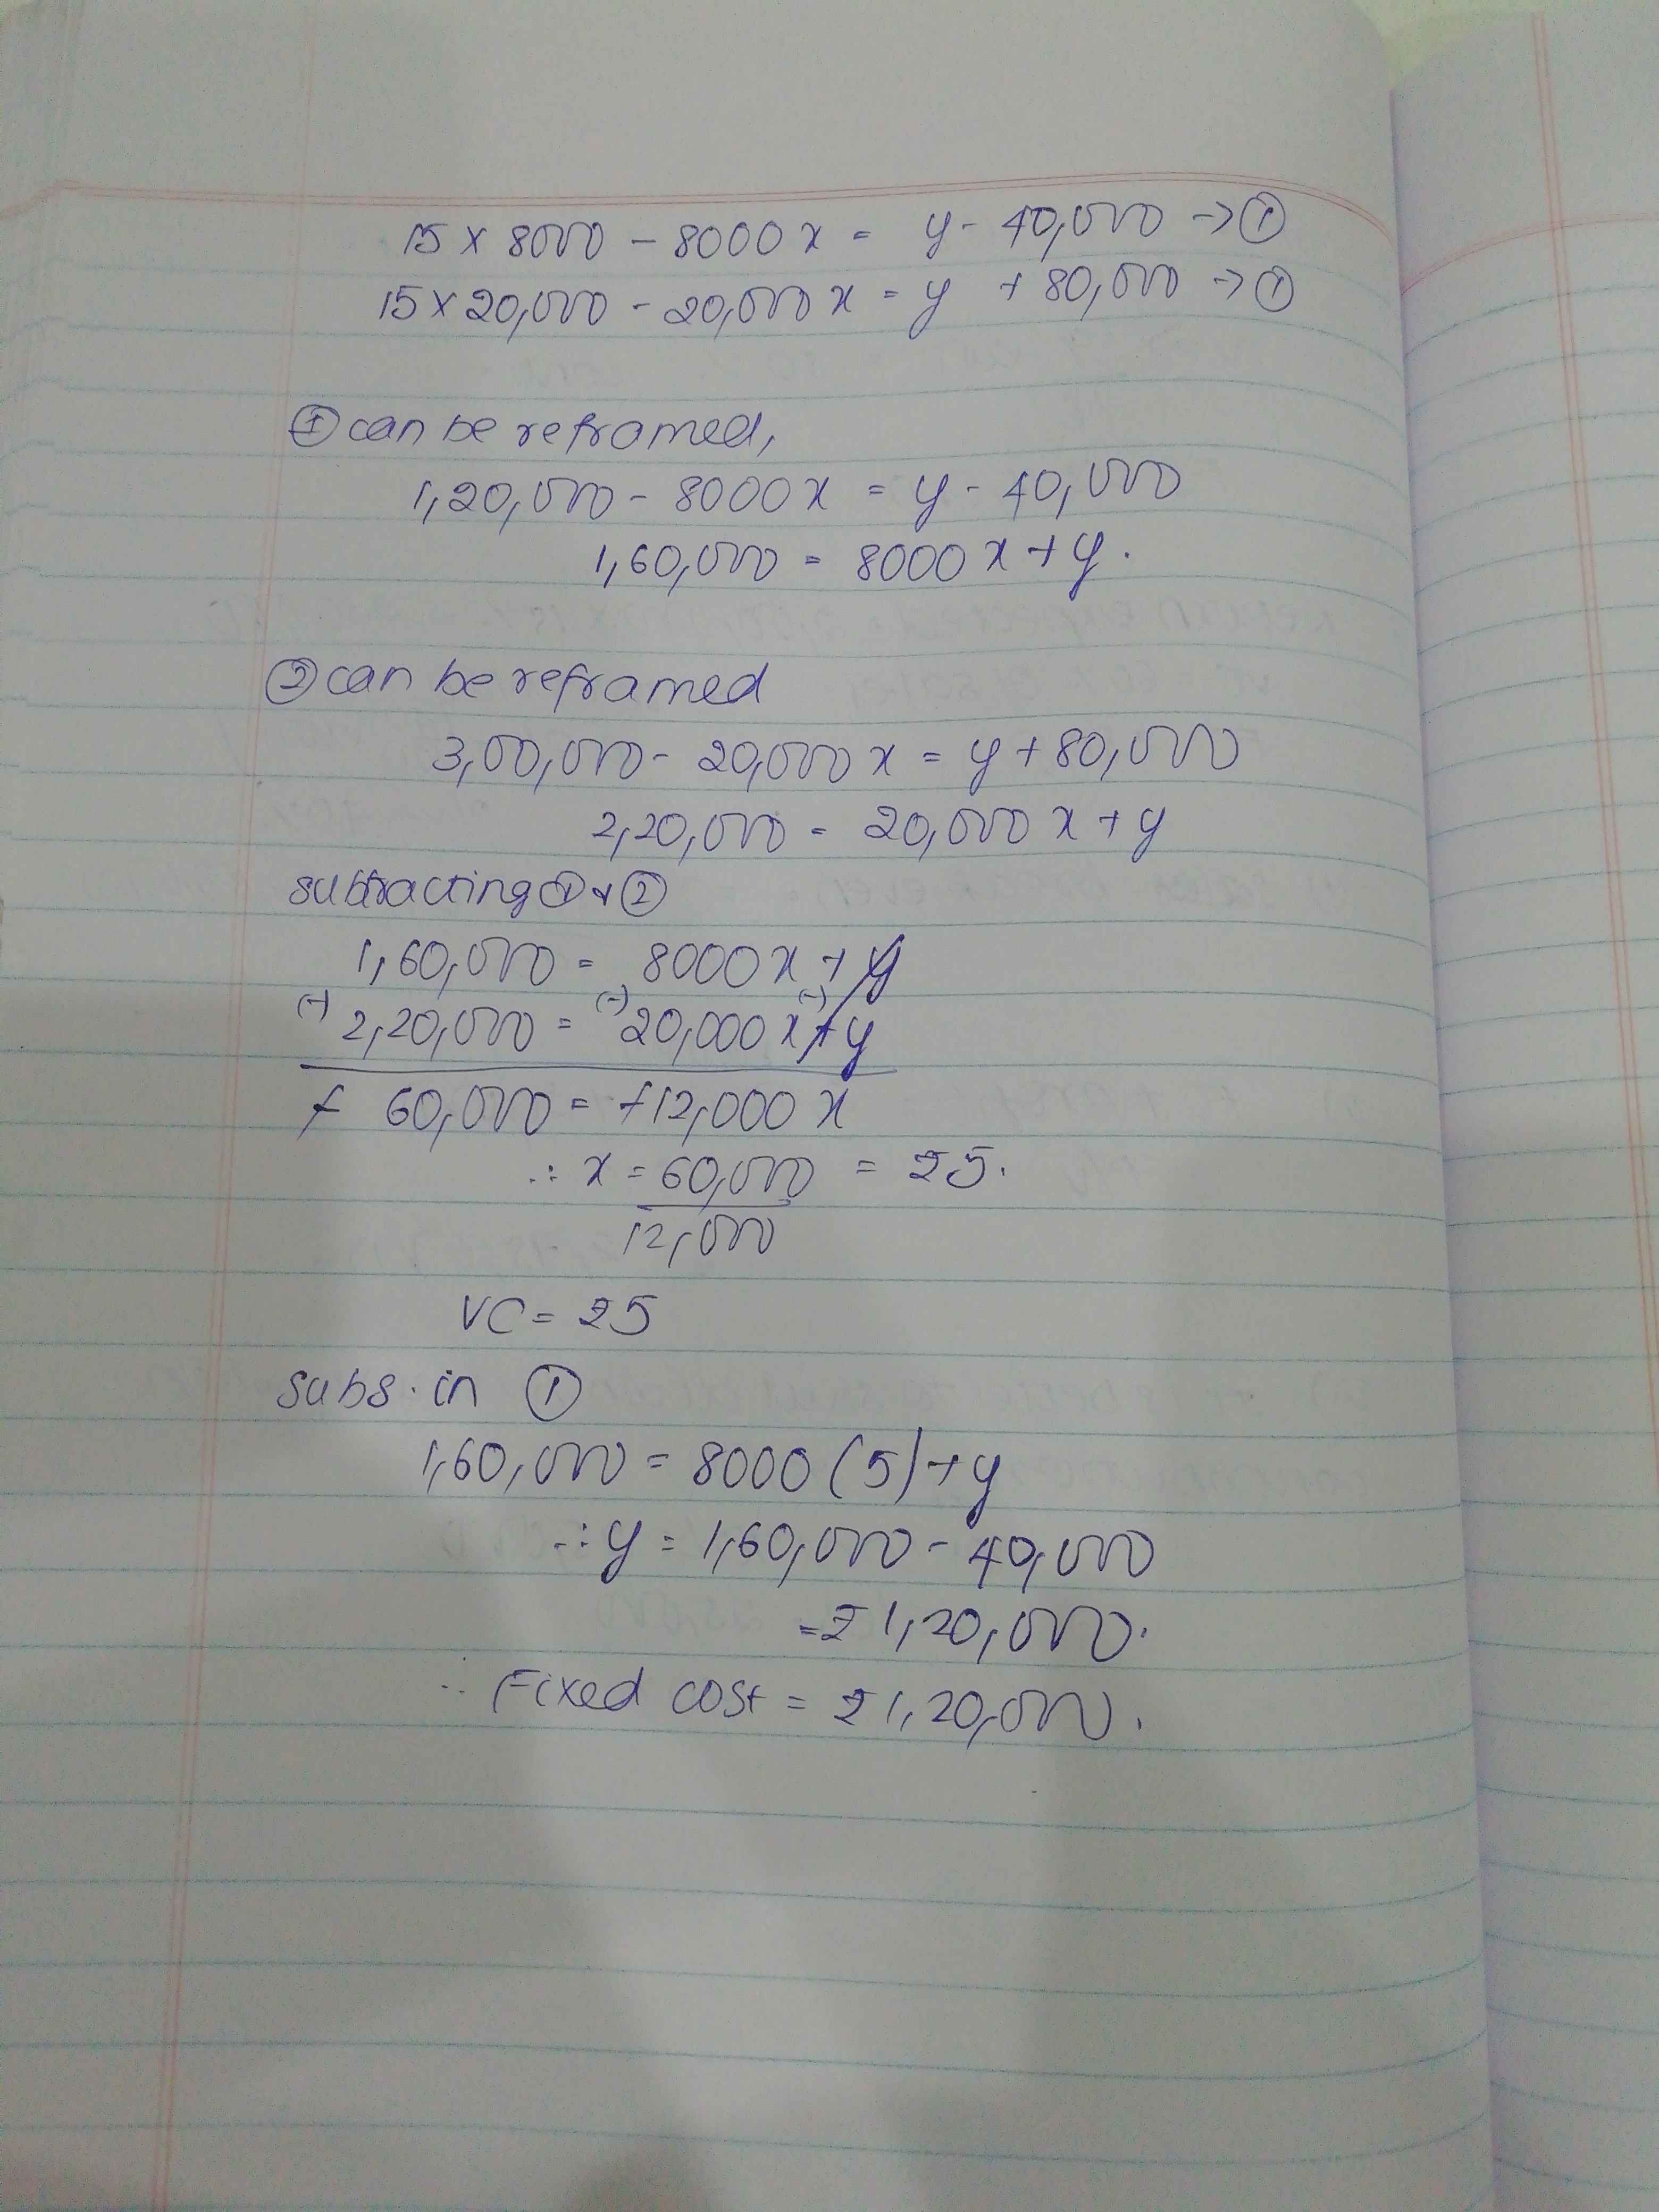 15 × 8000 - 8000 x = y - 40,000 → ①
15 × 20,000 - 20,000 x = y + 80,000 → ①
① can be reframed,
1,20,000 - 8000 x = y - 40,000
1,60,000 = 8000 x + y.
② can be reframed
3,00,000 - 20,000 x = y + 80,000
2,20,000 = 20,000 x + y
subtracting ① & ②
1,60,000 = 8000 x + y
(-) 2,20,000 = (-) 20,000 x (-) + y
+ 60,000 = +12,000 x
∴ x = 60,000 = ₹5.
12,000
VC = ₹5
subs. in ①
1,60,000 = 8000 (5) + y
∴ y = 1,60,000 - 40,000
= ₹1,20,000.
∴ Fixed cost = ₹1,20,000.